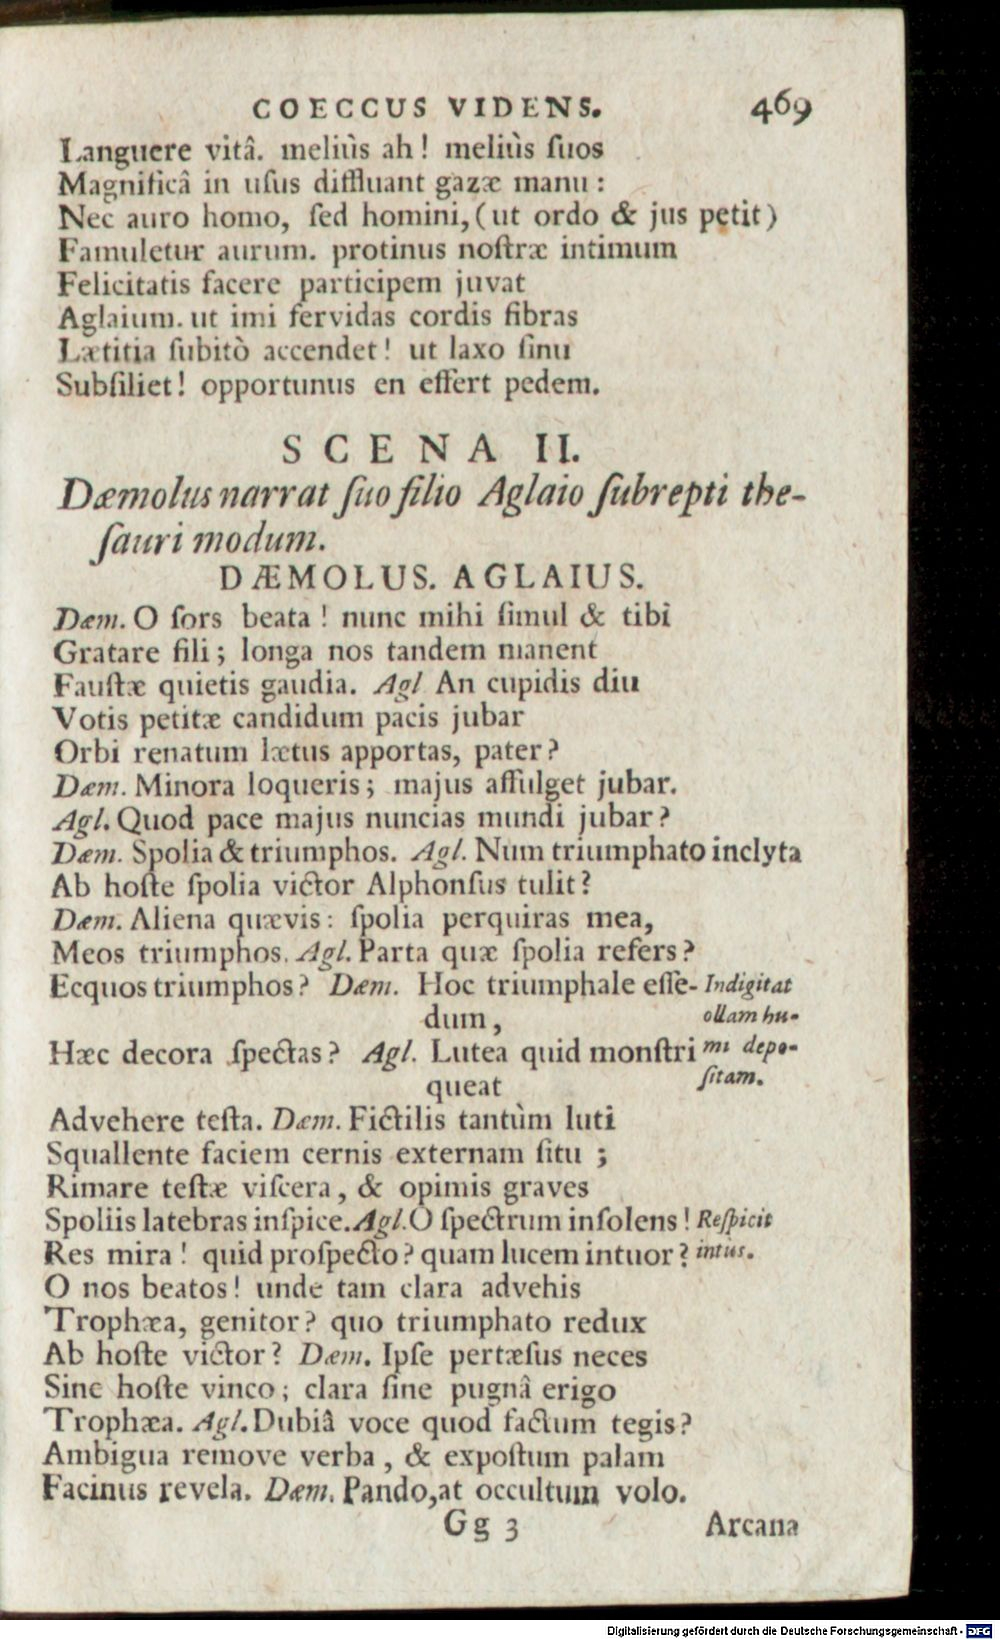 COECCUS VIDENS. 469
Languere vitâ. meliùs ah! meliùs ſuos
Magnificâ in uſus diffluant gazæ manu:
Nec auro homo, ſed homini, (ut ordo & jus petit)
Famuletur aurum. protinus noſtræ intimum
Felicitatis facere participem juvat
Aglaium. ut imi fervidas cordis fibras
Lætitia ſubitò accendet! ut laxo ſinu
Subſiliet! opportunus en effert pedem.
SCENA II.
Dæmolus narrat ſuo filio Aglaio ſubrepti the-
ſauri modum.
DÆMOLUS. AGLAIUS.
Dæm. O ſors beata! nunc mihi ſimul & tibi
Gratare fili; longa nos tandem manent
Fauſtæ quietis gaudia. Agl An cupidis diu
Votis petitæ candidum pacis jubar
Orbi renatum lætus apportas, pater?
Dæm. Minora loqueris; majus affulget jubar.
Agl. Quod pace majus nuncias mundi jubar?
Dæm. Spolia & triumphos. Agl. Num triumphato inclyta
Ab hoſte ſpolia victor Alphonſus tulit?
Dæm. Aliena quævis: ſpolia perquiras mea,
Meos triumphos. Agl. Parta quæ ſpolia refers?
Ecquos triumphos? Dæm. Hoc triumphale eſſe- Indigitat
dum, ollam hu-
Hæc decora ſpectas? Agl. Lutea quid monſtri mi depo-
queat ſitam.
Advehere teſta. Dæm. Fictilis tantùm luti
Squallente faciem cernis externam ſitu;
Rimare teſtæ viſcera, & opimis graves
Spoliis latebras inſpice. Agl. O ſpectrum inſolens! Reſpicit
Res mira! quid proſpecto? quam lucem intuor? intùs.
O nos beatos! unde tam clara advehis
Trophæa, genitor? quo triumphato redux
Ab hoſte victor? Dæm. Ipſe pertæſus neces
Sine hoſte vinco; clara ſine pugnâ erigo
Trophæa. Agl. Dubiâ voce quod factum tegis?
Ambigua remove verba, & expoſtum palam
Facinus revela. Dæm. Pando, at occultum volo.
Gg 3 Arcana
Digitalisierung gefördert durch die Deutsche Forschungsgemeinschaft - DFG